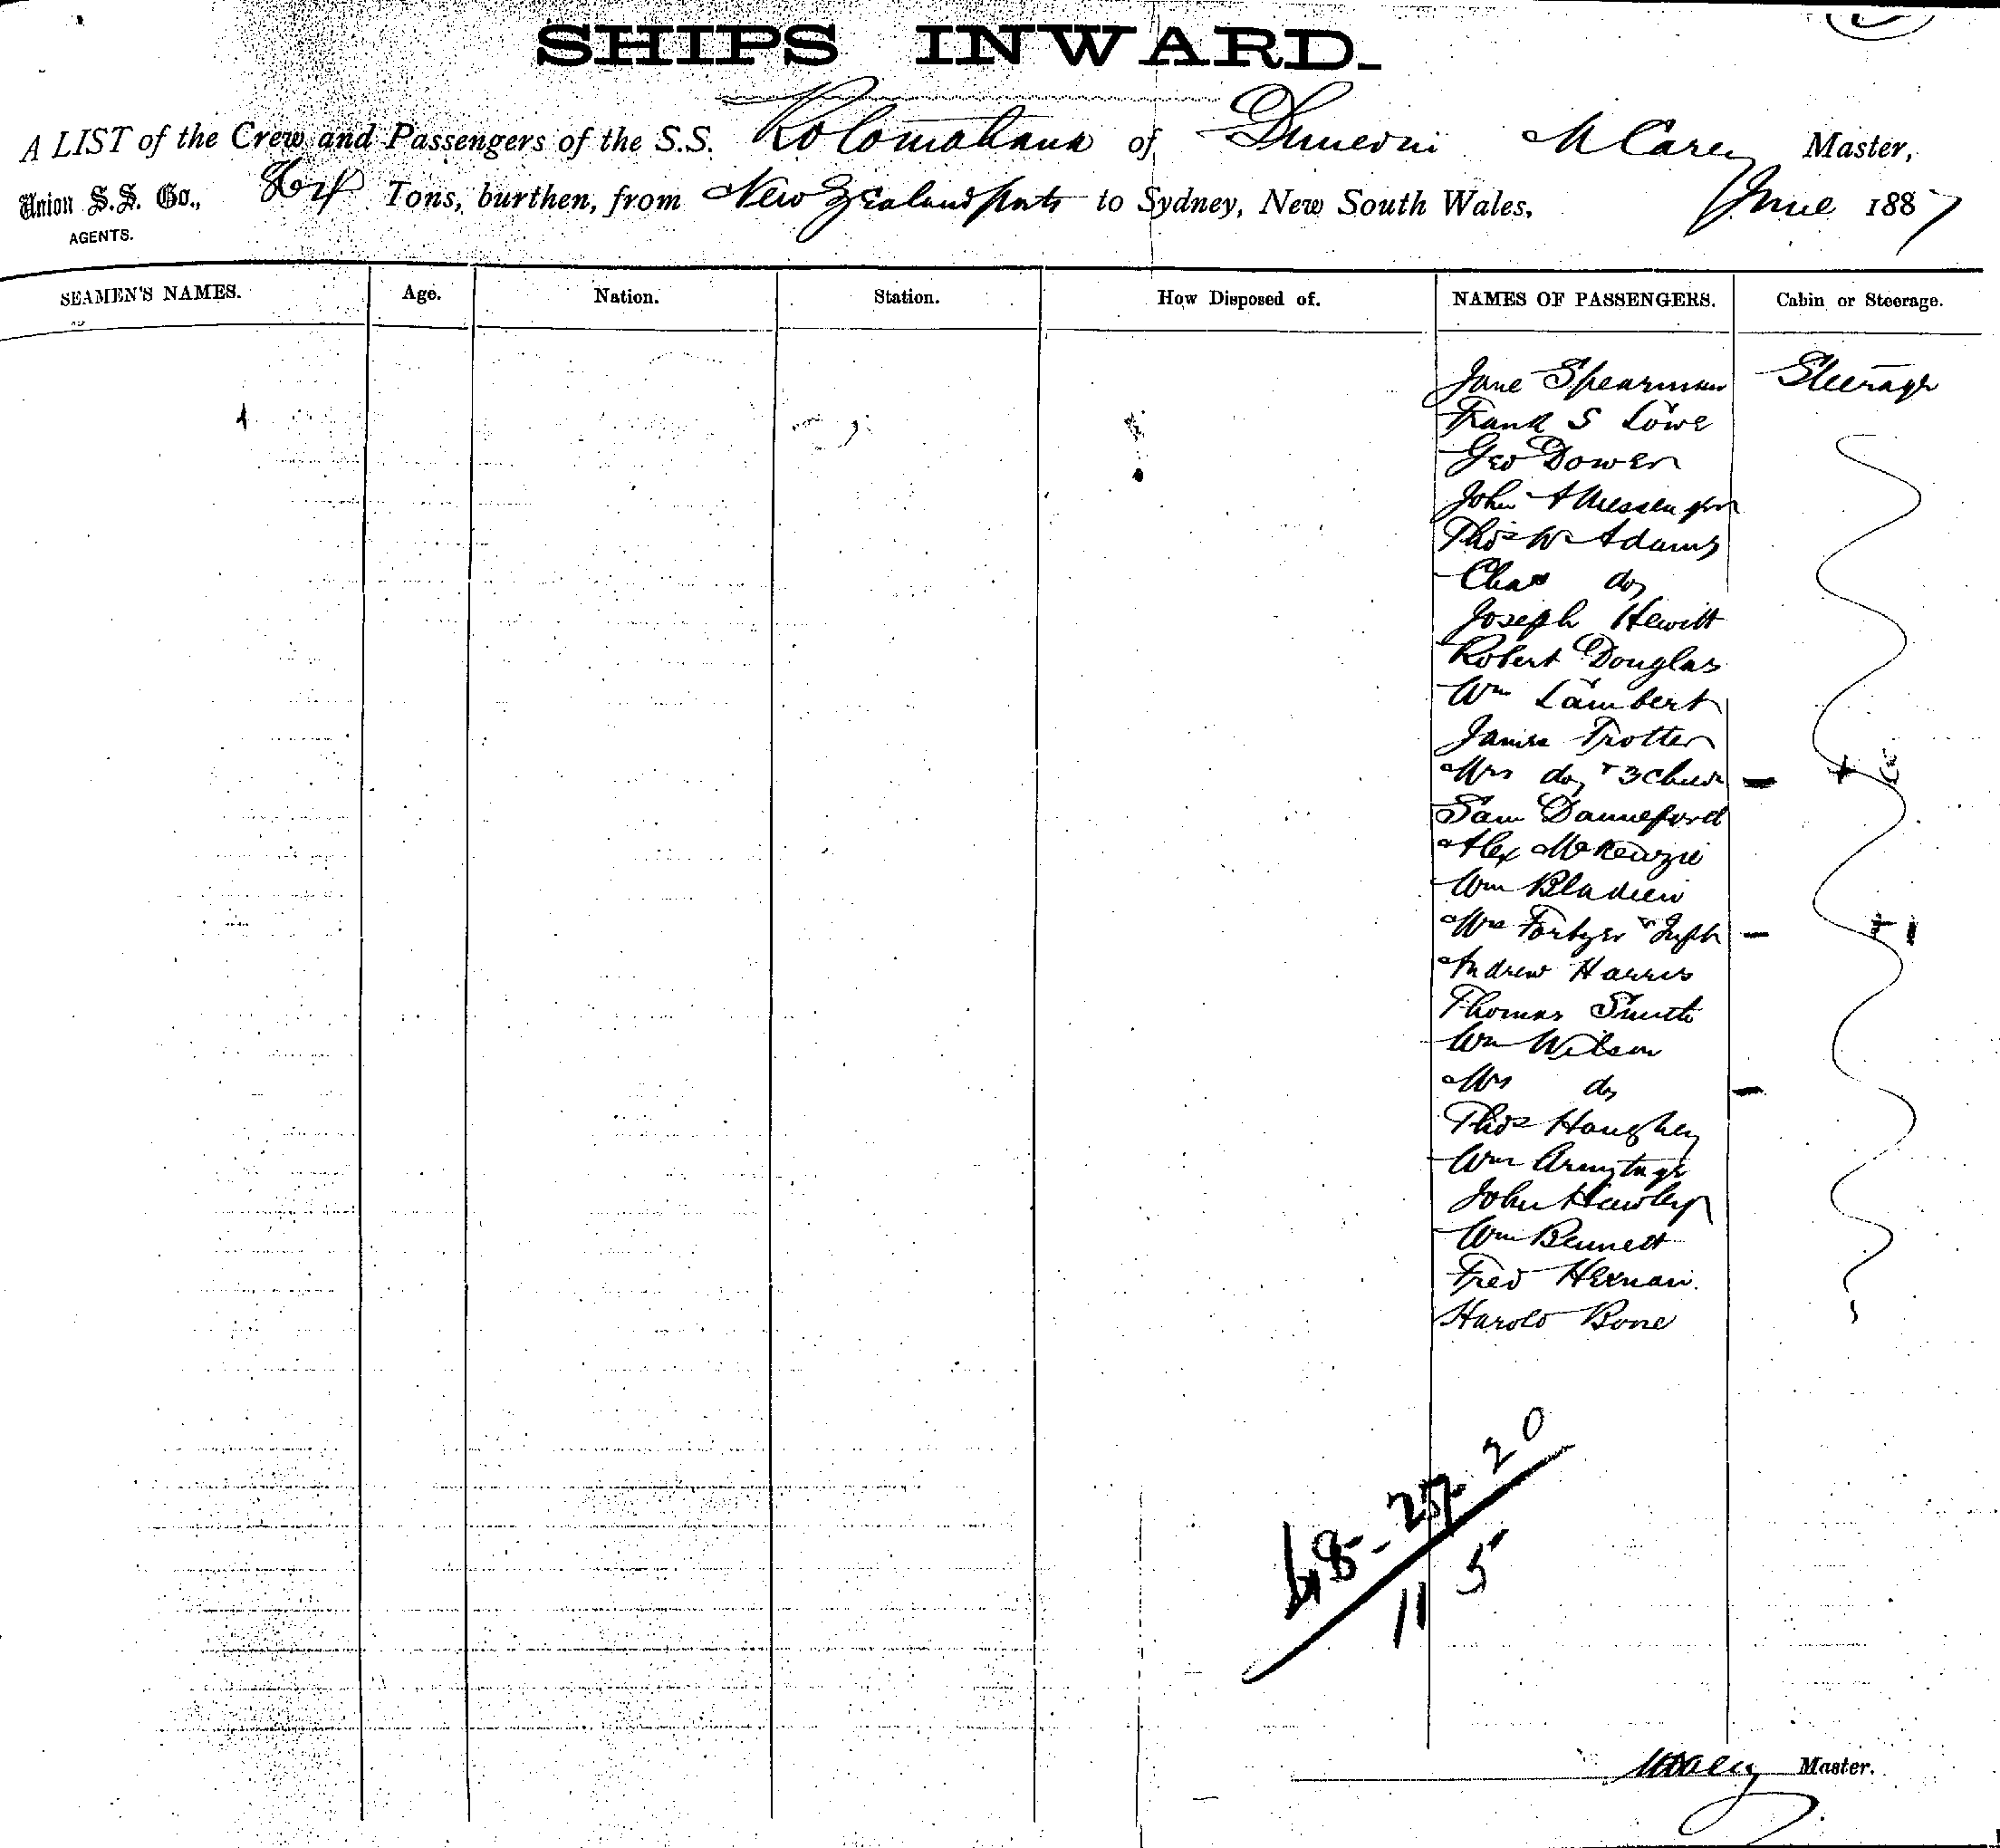 SHIPS INWARD.
A LIST of the Crew and Passengers of the S.S. Rotomahana of Dunedin M Carey Master,
Union S.S. Co., 864 Tons, burthen, from New Zealand ports to Sydney, New South Wales, June 1887
AGENTS.
SEAMEN'S NAMES. Age. Nation. Station. How Disposed of. NAMES OF PASSENGERS. Cabin or Steerage.
Jane Spearman Steerage
Frank S Lowe
Geo Dower
John A Messenger
Thos W Adams
Chas do
Joseph Hewitt
Robert Douglas
Wm Lambert
James Trotter
Mrs do & 3 - + 3
Sam Danneford
Alex McKenzie
Wm
Mrs & Inft - + 1
Andrew Harris
Thomas Smith
Wm Wilson
Mrs do -
Thos Haughey
Wm Armytage
John Hawley
Wm Bennett
Fred
Harold Bone
48 - 25 20
11 5
MCarey Master.